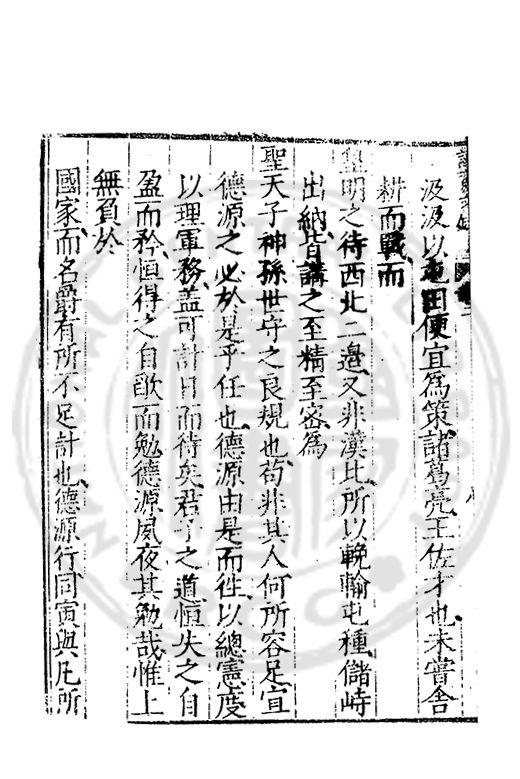 汲汲以屯田便宜為策諸葛亮王佐才也未嘗舍
耕而戰而
聖明之待西北二邊又非漢比所以輓輸屯種儲峙
出納皆講之至精至密為
聖天子神孫世守之良規也苟非其人何所容足宜
德源之必於是乎任也德源由是而往以總憲度
以理軍務盖可計日而待矣君子之道恒失之自
盈而矜恒得之自歉而勉德源夙夜其勉哉惟上
無負於
國家而名爵有所不足計也德源行同寅與凡所